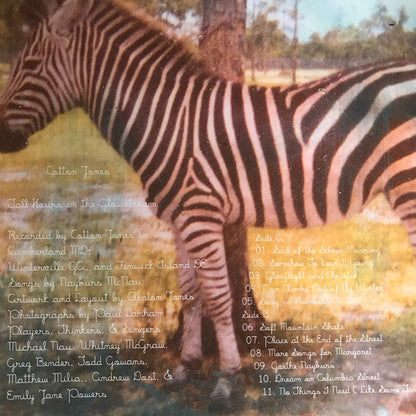 Cotton Jones
Tall Hours in the Glowstream
Recorded by Cotton Jones in
Cumberland MD,
Winterville GA, and Fenwick Island DE.
Songs by Nayburs McNau
Artwork and Layout by Clinton Jones
Photographs by Paul Lanham
Players, Thinkers, & Singers
Michael Nau, Whitney McGraw,
Greg Bender, Todd Gowans,
Matthew Milia, Andrew Dost, &
Emily Jane Powers
Side
01. Sail of the Silver Morning
02. Somehow To Keep It Going
03. Glorylight and Christie
04 Man Climbs Out of the Winter
05. Song in Numbers
Side
06. Soft Mountain Shake
07. Place at the End of the Street
08. More Songs for Margaret
09. Goethe Nayburs
10. Dream on Columbia Street
11. No Things I Need ( Like Some